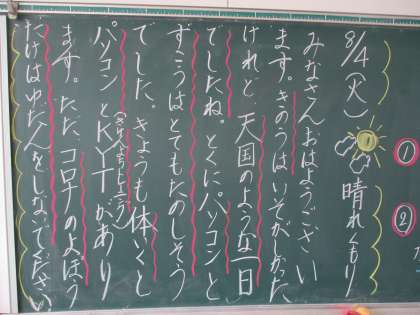 8/4(火) 晴れくもり
みなさんおはようござい
ます。きのうはいそがしかった
けれど、天国のような一日
でしたね。とくにパソコンと
ずこうはとてもたのしそう
でした。きょうも体いくと
パソコンとKYTがあり
ます。ただ、コロナのよぼう
だけはゆだんをしないでください
①
②